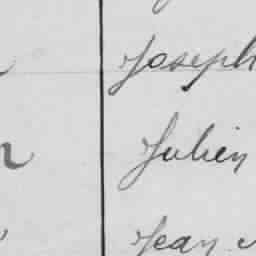 Joseph
Julien
Jean